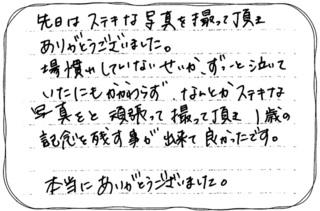 先日はステキな写真を撮って頂き
ありがとうございました。
場慣れしていないせいか、ず〜っと泣いて
いたにもかかわらず、なんとかステキな
写真をと 頑張って撮って頂き 1歳の
記念を残す事が出来て良かったです。
本当にありがとうございました。